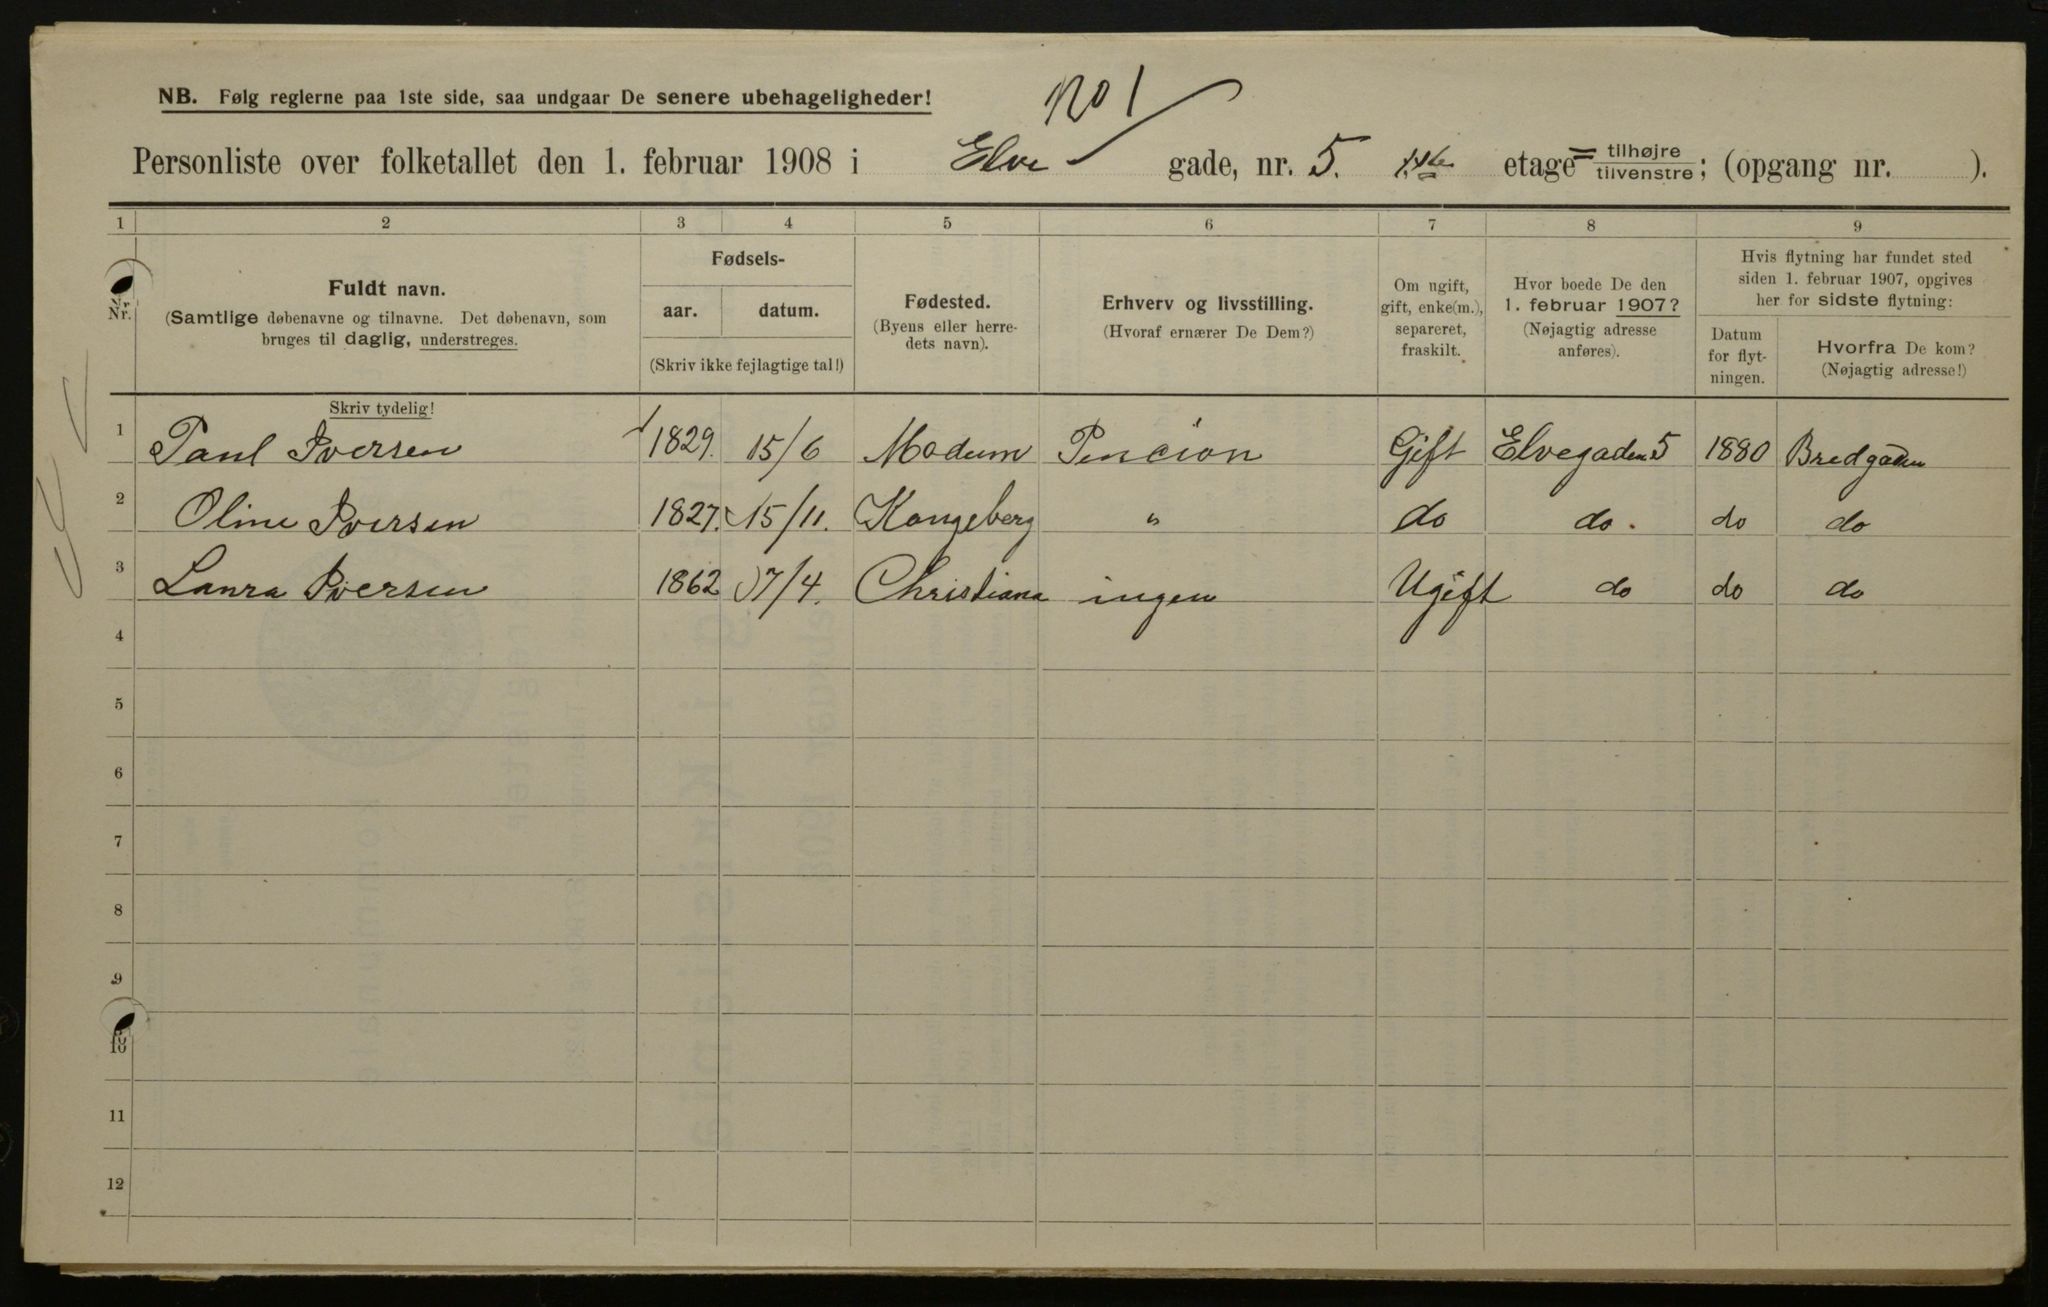 NB. Følg reglerne paa 1ste side, saa undgaar De senere ubehageligheder!
No 1
Personliste over folketallet den 1. februar 1908 i Elve gade, nr. 5. 1ste etage = tilhøjre/tilvenstre; (opgang nr. ).
1 2 3 4 5 6 7 8 9
Nr.
Fuldt navn.
(Samtlige døbenavne og tilnavne. Det døbenavn, som
bruges til daglig, understreges.
Skriv tydelig!
Fødsels-
aar. datum.
(Skriv ikke fejlagtige tal!)
Fødested.
(Byens eller herre-
dets navn).
Erhverv og livsstilling.
(Hvoraf ernærer De Dem?)
Om ugift,
gift, enke(m.),
separeret,
fraskilt.
Hvor boede De den
1. februar 1907?
(Nøjagtig adresse
anføres).
Hvis flytning har fundet sted
siden 1. februar 1907, opgives
her for sidste flytning:
Datum
for flyt-
ningen.
Hvorfra De kom?
(Nøjagtig adresse!)
1 Paul Iversen 1829. 15/6 Modum Pencion Gift Elvegaden 5 1880 Bredgaden
2 Oline Iversen 1827. 15/11. Kongeberg " do do. do do
3 Laura Iversen 1862 17/4. Christiana ingen Ugift do do do
4
5
6
7
8
9
10
11
12